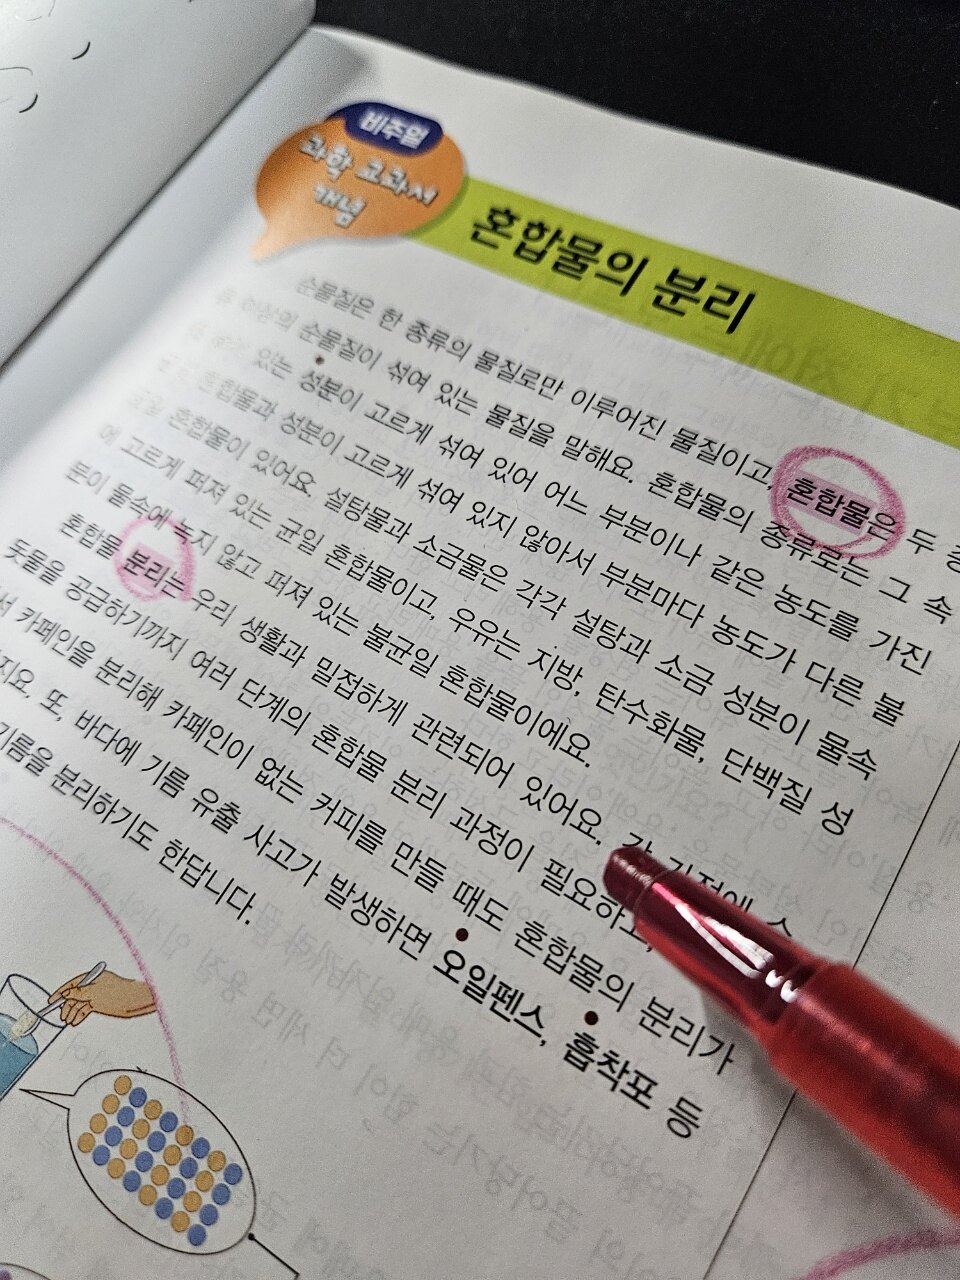 비주얼
과학 교과서
개념
혼합물의 분리
순물질은 한 종류의 물질로만 이루어진 물질이고, 혼합물은 두
이상의 순물질이 섞여 있는 물질을 말해요. 혼합물의 종류로는 그 속
있는 성분이 고르게 섞여 있어 어느 부분이나 같은 농도를 가진
혼합물과 성분이 고르게 섞여 있지 않아서 부분마다 농도가 다른 불
혼합물이 있어요. 설탕물과 소금물은 각각 설탕과 소금 성분이 물속
에 고르게 퍼져 있는 균일 혼합물이고, 우유는 지방, 탄수화물, 단백질 성
분이 물속에 녹지 않고 퍼져 있는 불균일 혼합물이에요.
혼합물 분리는 우리 생활과 밀접하게 관련되어 있어요.
돗물을 공급하기까지 여러 단계의 혼합물 분리 과정이 필요하고,
서 카페인을 분리해 카페인이 없는 커피를 만들 때도 혼합물의 분리가
지요. 또, 바다에 기름 유출 사고가 발생하면 오일펜스, 흡착포 등
기름을 분리하기도 한답니다.